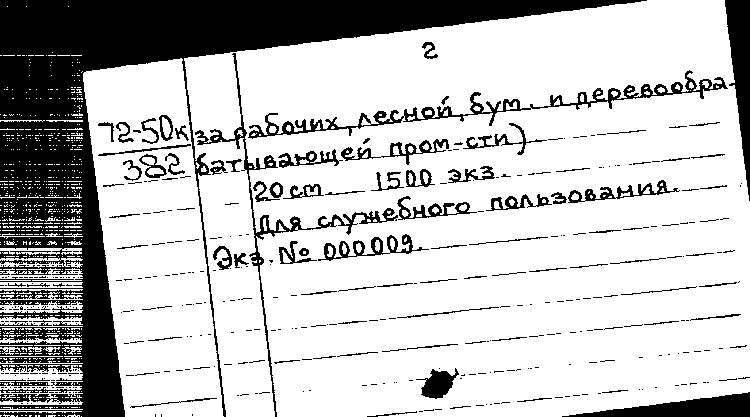 2
72-50к за рабочих, лесной, бум. и деревообра-
382 батывающей пром-сти)
20 cm. 1500 экз.
Для служебного пользования.
Экз. № 000009.